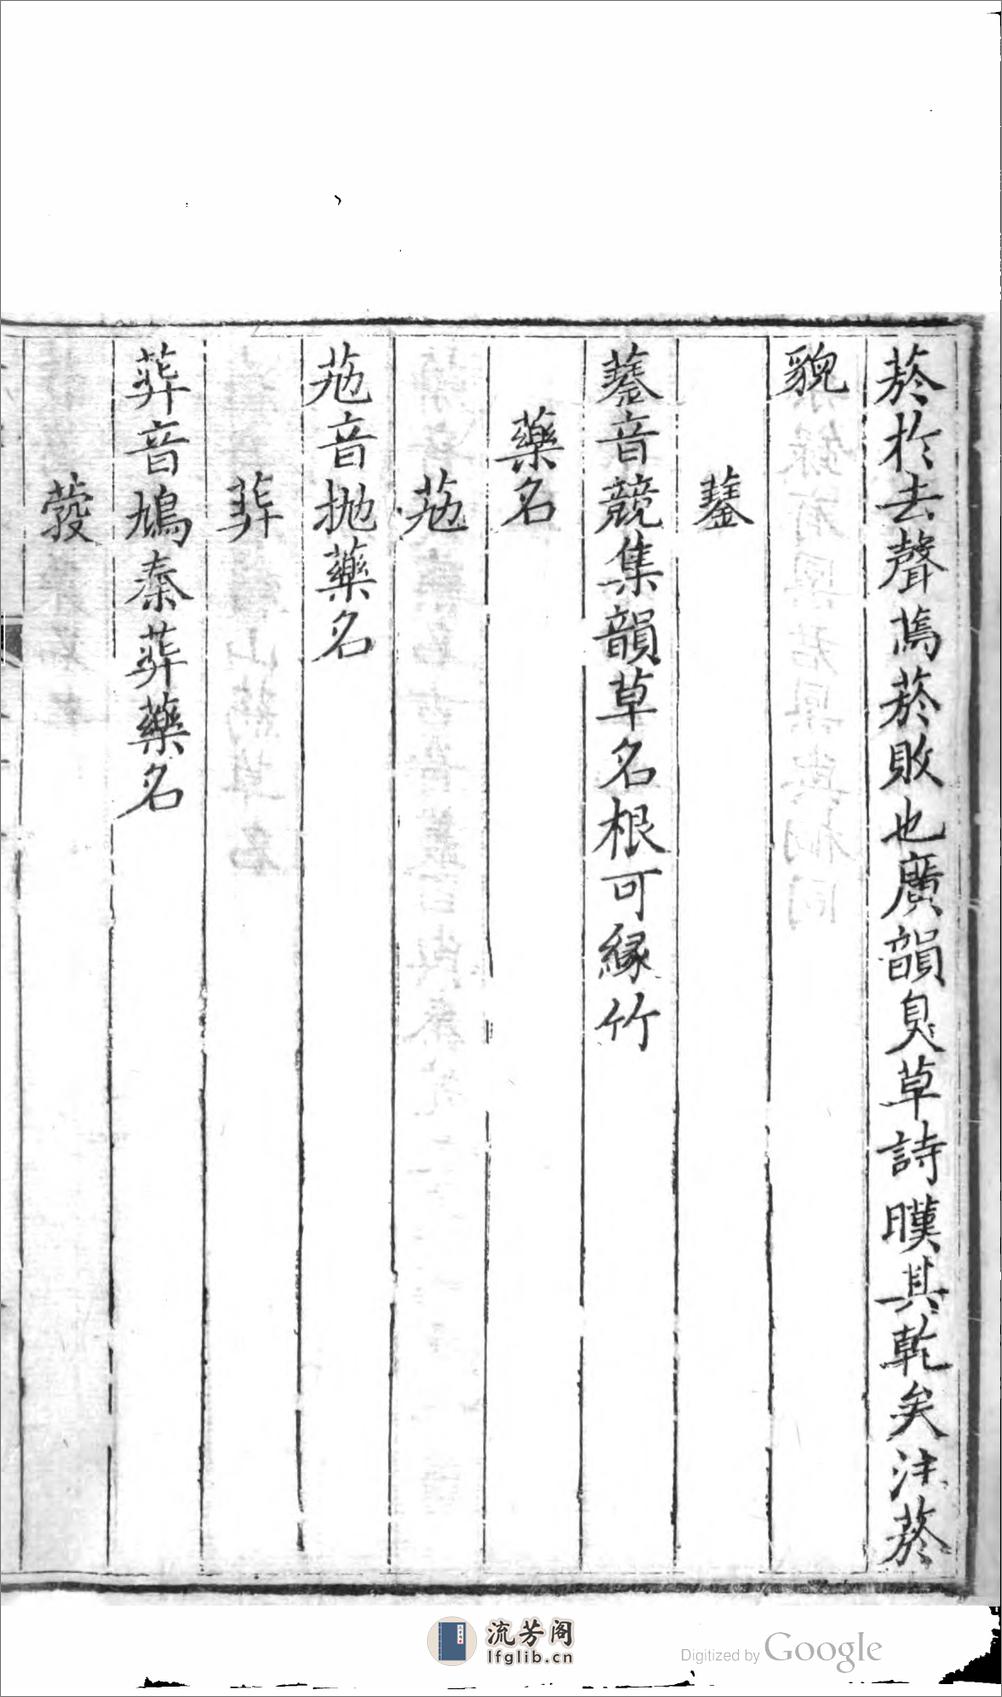 菸於去聲蔫菸敗也廣韻臭草詩暵其乾矣注菸
貌
音競集韻草名根可緣竹
藥名
葂
葂音拋藥名
茾
茾音鳩秦茾藥名
藙
流芳阁
lfglib.cn
Digitized by Google